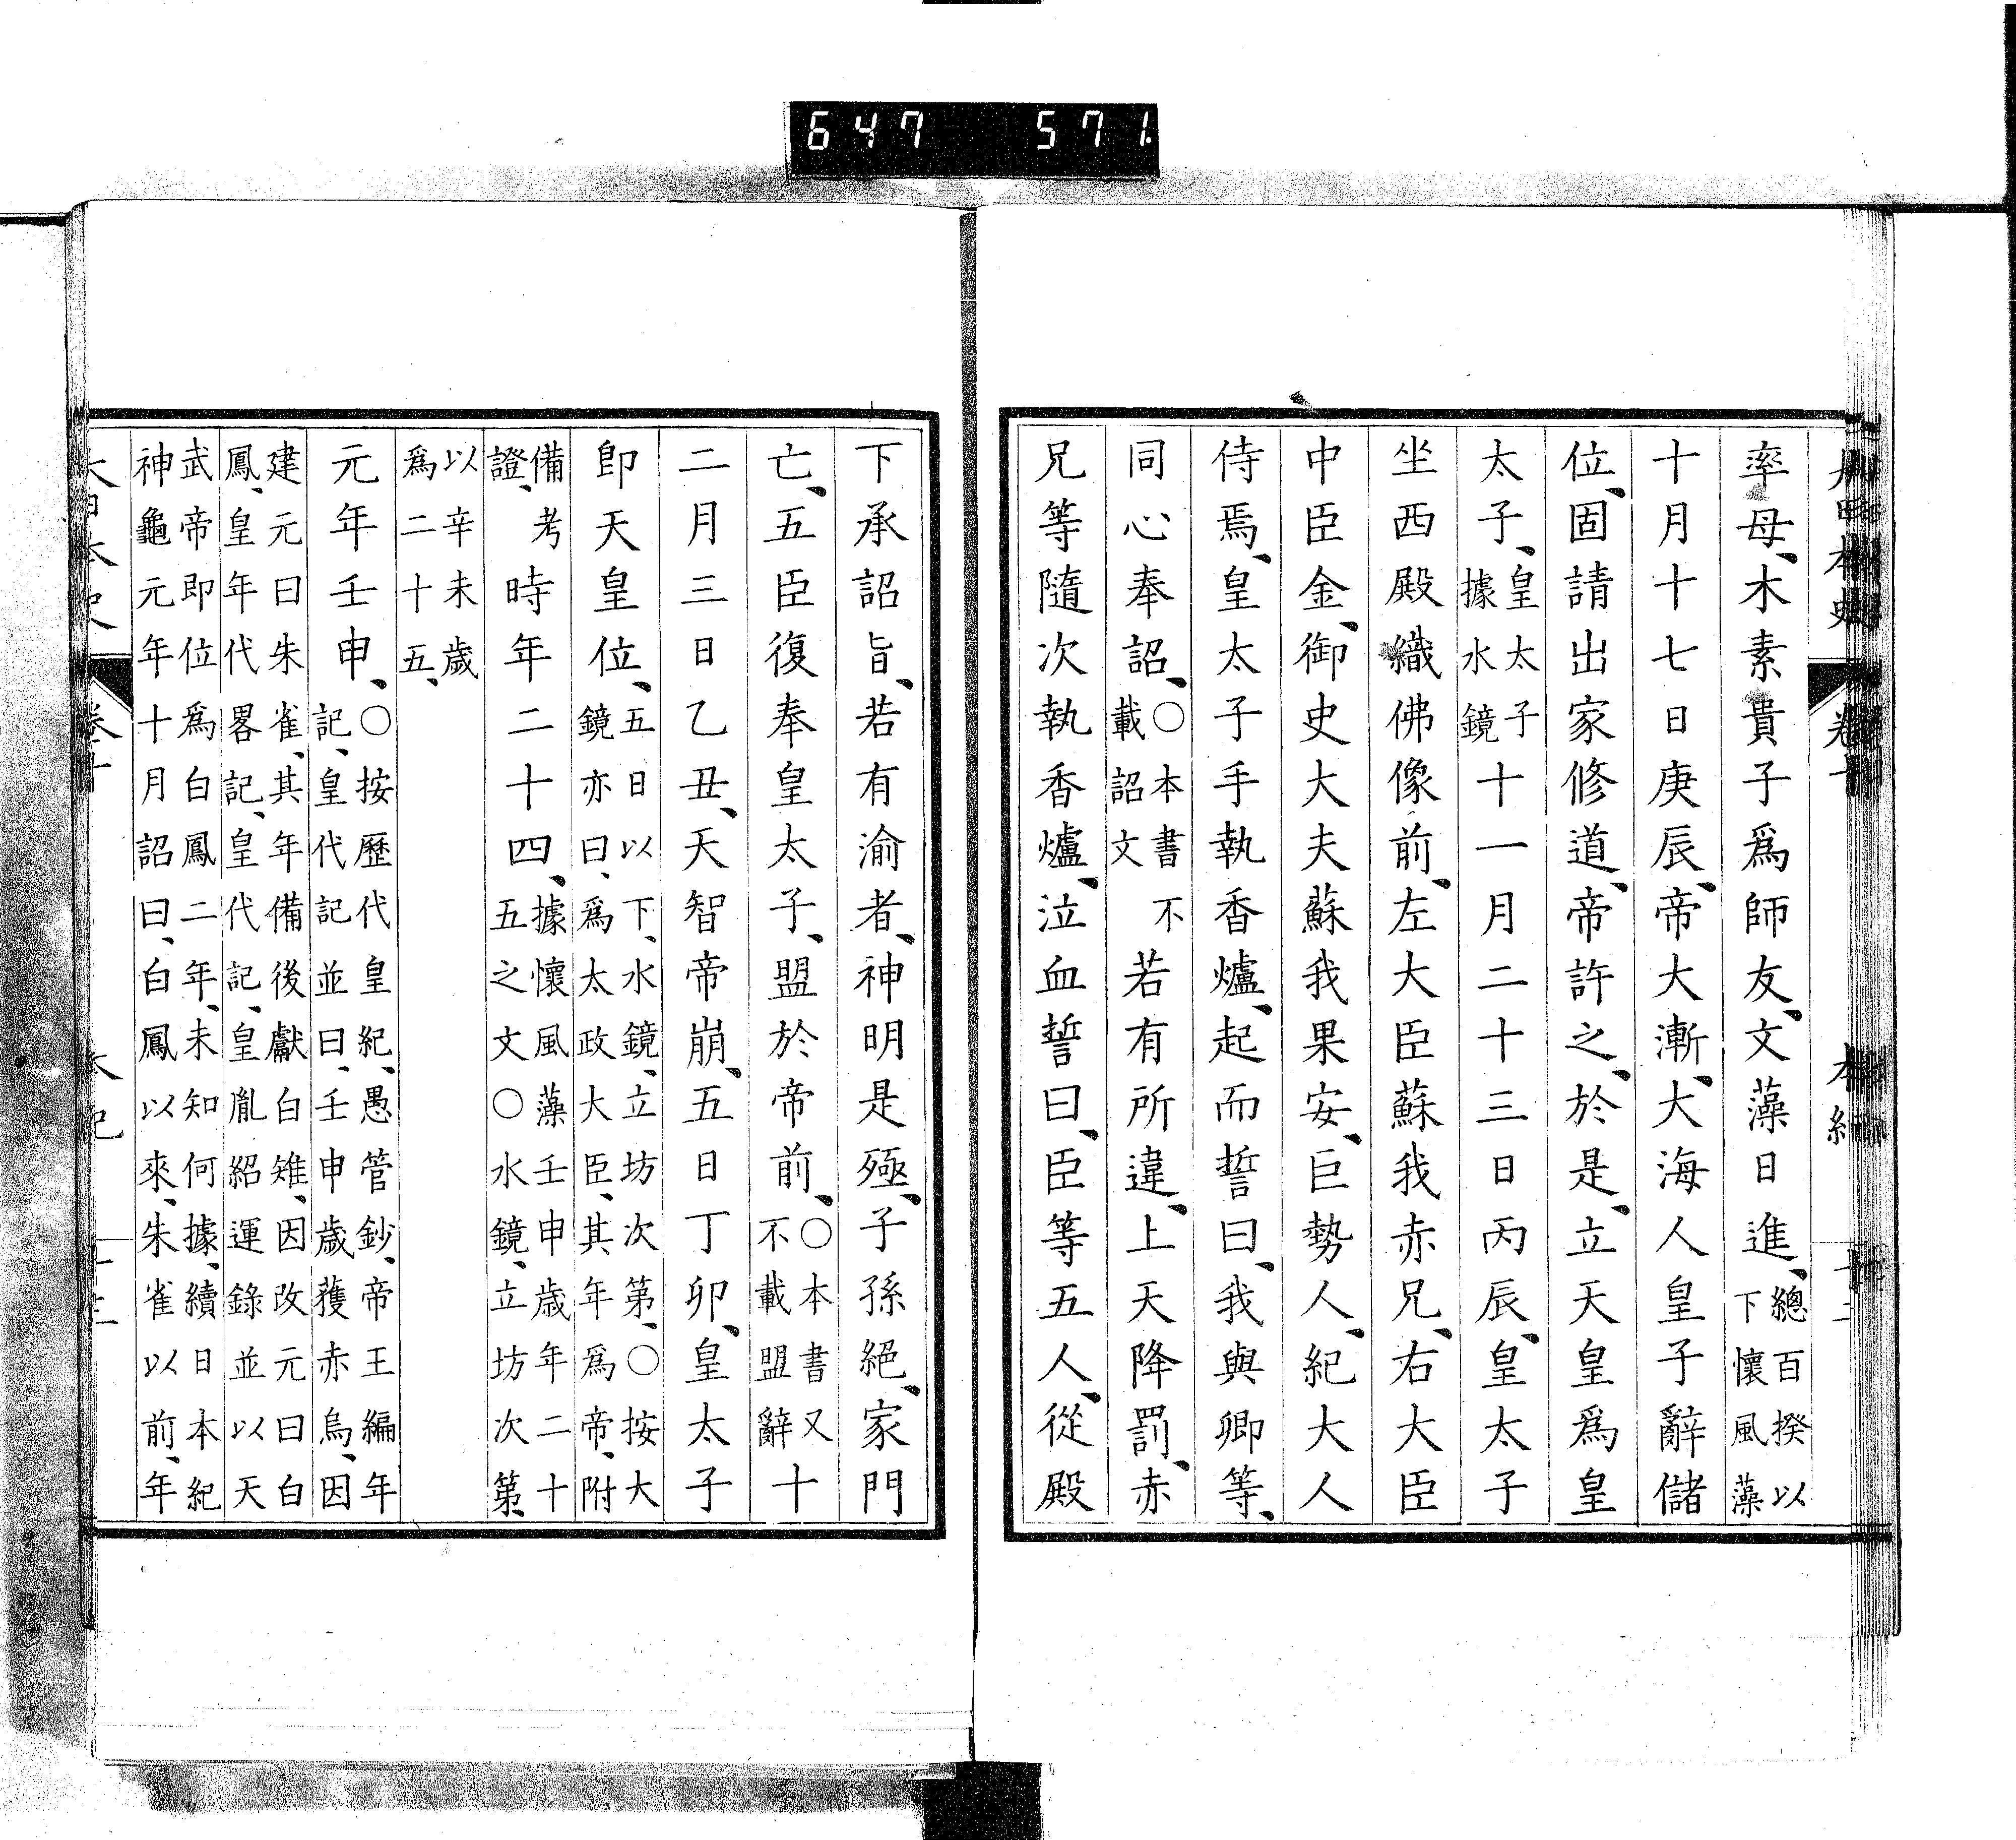 647 571
大日本史 卷十 本紀
率母、木素貴子爲師友、文藻日進、總百揆以下懷風藻
十月十七日庚辰、帝大漸、大海人皇子辭儲
位、固請出家修道、帝許之、於是、立天皇爲皇
太子、皇太子據水鏡十一月二十三日丙辰、皇太子
坐西殿織佛像前、左大臣蘇我赤兄、右大臣
中臣金、御史大夫蘇我果安、巨勢人、紀大人
侍焉、皇太子手執香爐、起而誓曰、我與卿等、
同心奉詔、〇本書不載詔文若有所違、上天降罰、赤
兄等隨次執香爐、泣血誓曰、臣等五人、從殿
下承詔旨、若有渝者、神明是殛、子孫絕、家門
亡、五臣復奉皇太子、盟於帝前、〇本書又不載盟辭十
二月三日乙丑、天智帝崩、五日丁卯、皇太子
卽天皇位、五日以下、水鏡、立坊次第、〇按大鏡亦曰、爲太政大臣、其年爲帝、附
備考證、時年二十四、據懷風藻壬申歲年二十五之文〇水鏡、立坊次第、
以辛未歲爲二十五、
元年壬申、〇按歷代皇紀、愚管鈔、帝王編年記、皇代記並曰、壬申歲獲赤烏、因
建元曰朱雀、其年備後獻白雉、因改元曰白鳳、皇年代畧記、皇代記、皇胤紹運錄並以天
武帝即位爲白鳳二年、未知何據、續日本紀神龜元年十月詔曰、白鳳以來、朱雀以前、年
大日本史 卷十 本紀